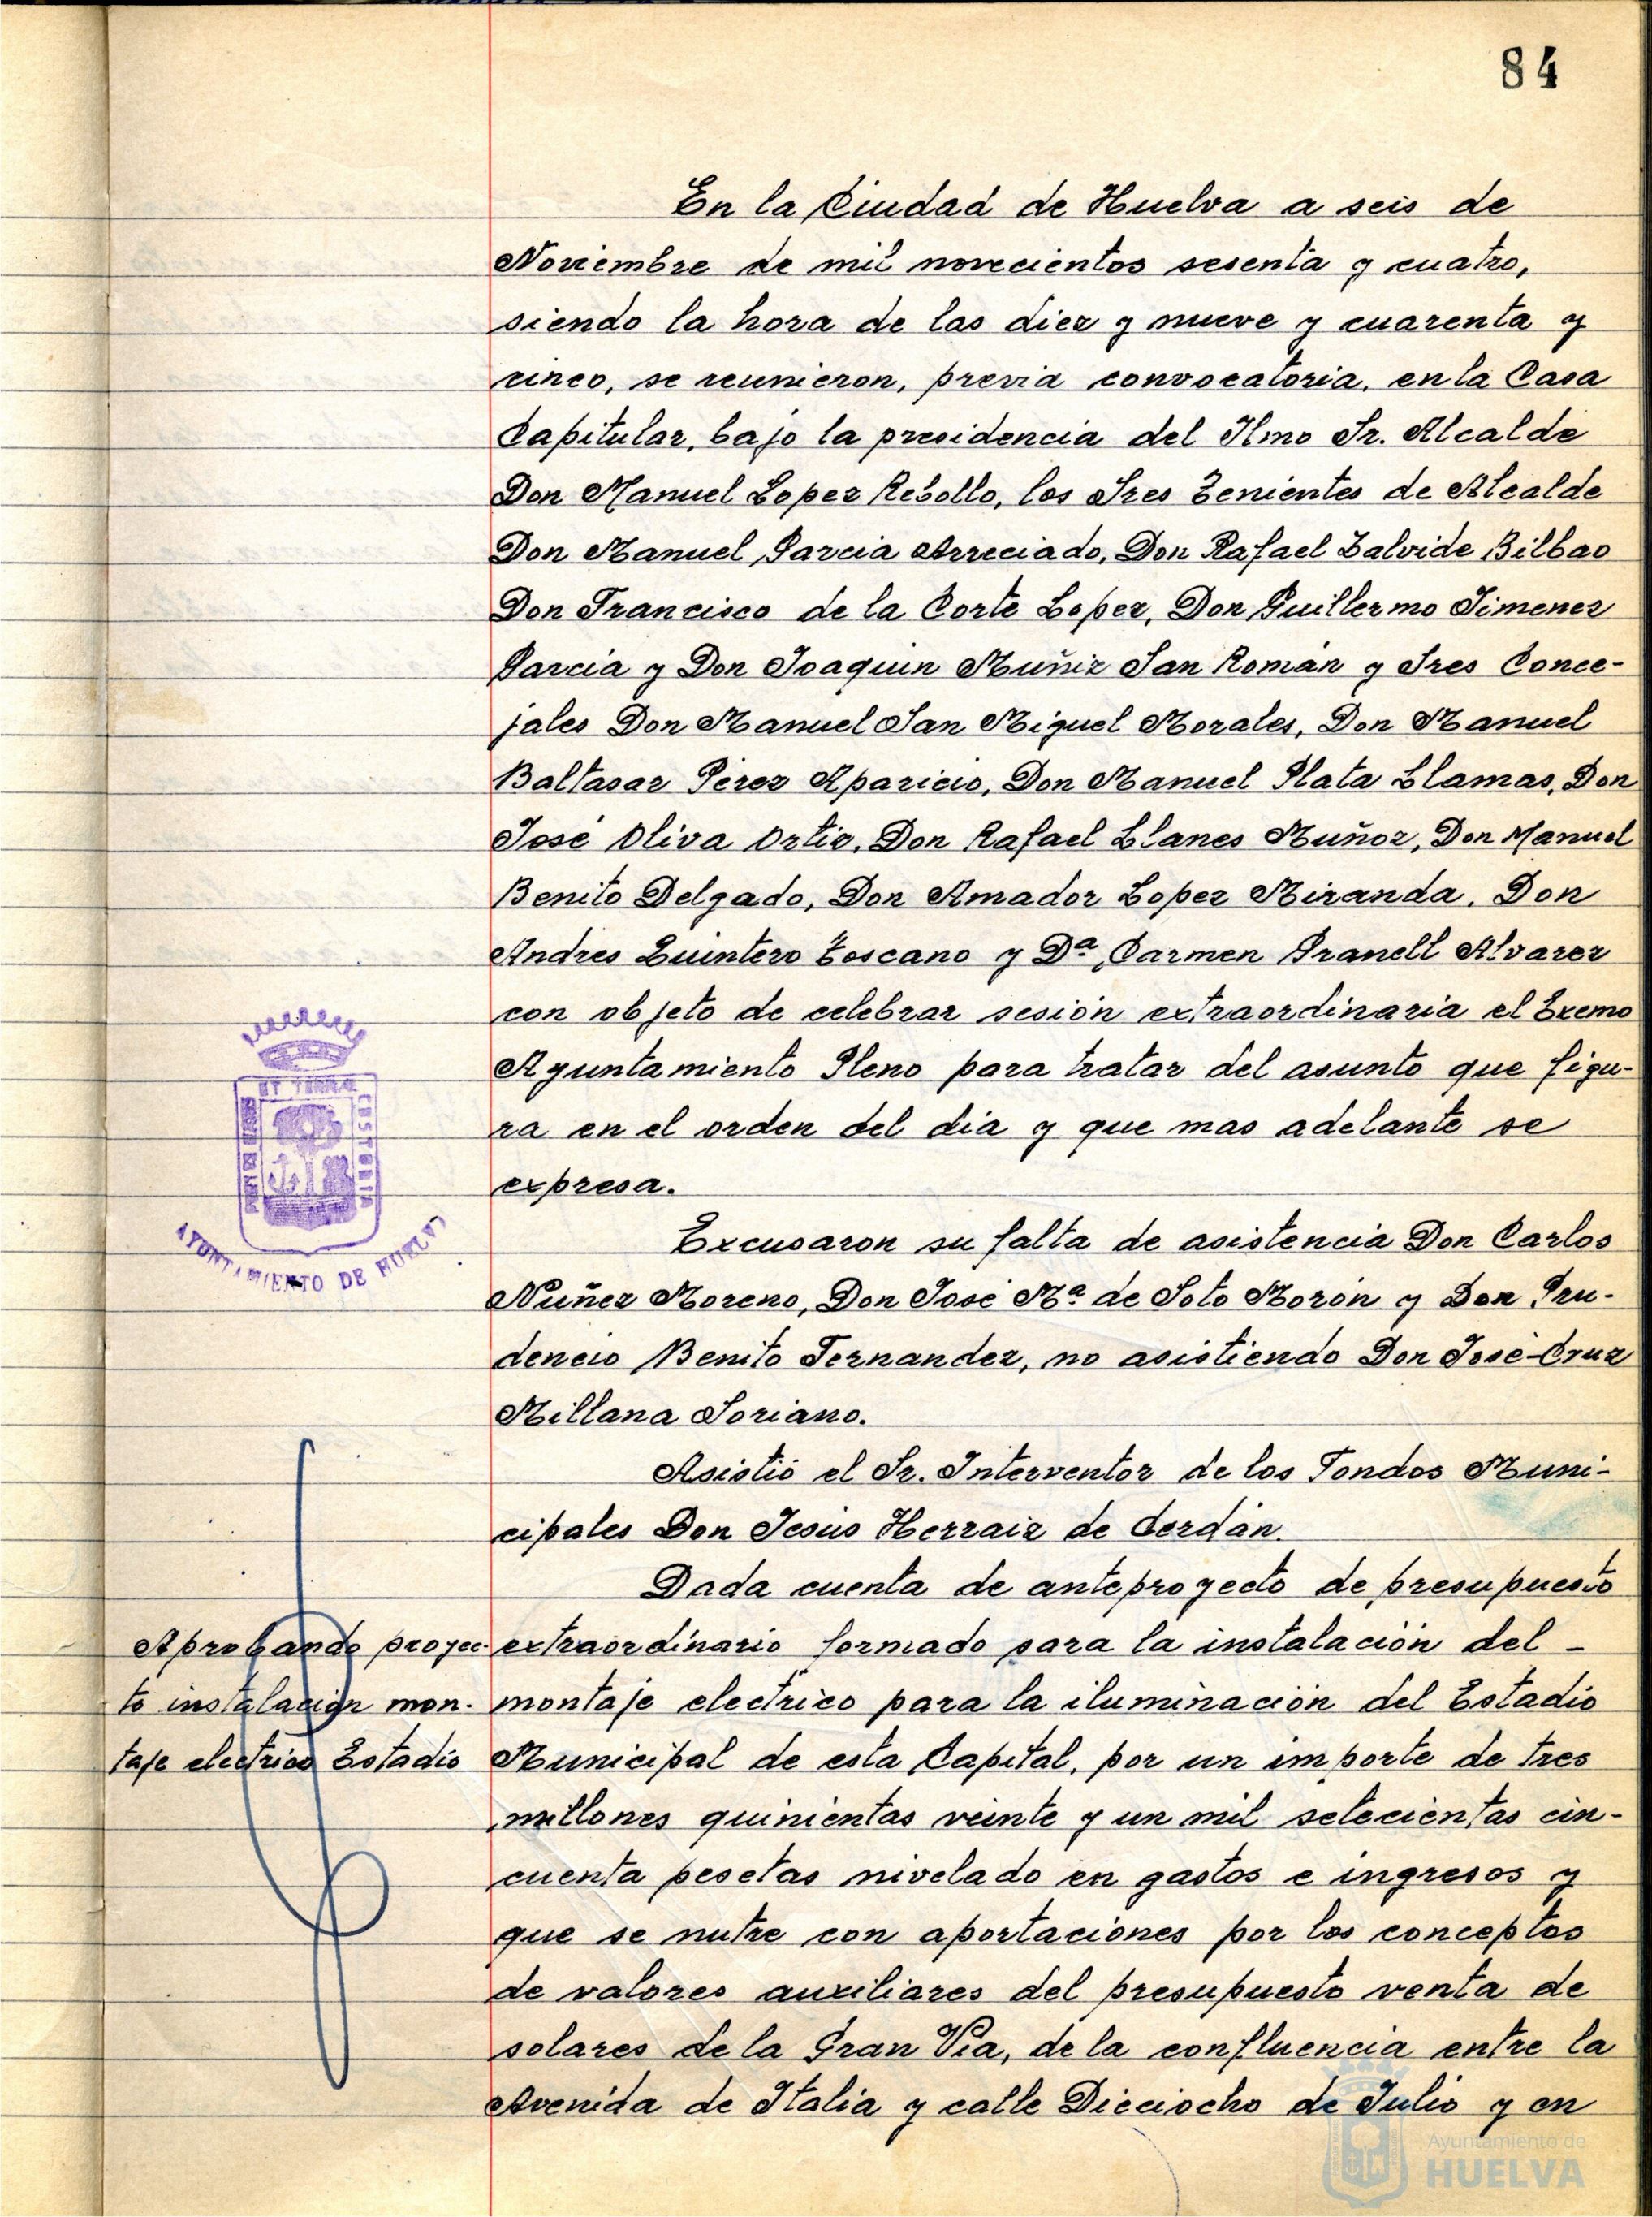 84
En la Ciudad de Huelva a seis de
Noviembre de mil novecientos sesenta y cuatro,
siendo la hora de las diez y nueve y cuarenta y
cinco, se reunieron, previa convocatoria, en la Casa
Capitular, bajo la presidencia del Ilmo Sr. Alcalde
Don Manuel Lopez Rebollo, los Sres Tenientes de Alcalde
Don Manuel Garcia Arreciado, Don Rafael Zalvide Bilbao
Don Francisco de la Corte Lopez, Don Guillermo Jimenez
Garcia y Don Joaquin Muñiz San Román y Sres Conce-
jales Don Manuel San Miguel Morales, Don Manuel
Baltasar Pérez Aparicio, Don Manuel Plata Llamas, Don
José Oliva Ortiz, Don Rafael Llanes Muñoz, Don Manuel
Benito Delgado, Don Amador Lopez Miranda, Don
Andrés Quintero Toscano y Dª Carmen Granell Alvarez
con objeto de celebrar sesión extraordinaria el Excmo
Ayuntamiento Pleno para tratar del asunto que figu-
ra en el orden del dia y que mas adelante se
expresa.
ET TERRE
CUSTODIA
AYUNTAMIENTO DE HUELVA
Excusaron su falta de asistencia Don Carlos
Nuñez Moreno, Don José Mª de Soto Morón y Don Pru-
dencio Benito Fernandez, no asistiendo Don José-Cruz
Millana Soriano.
Asistió el Sr. Interventor de los Fondos Muni-
cipales Don Jesús Herraiz de Cerdán.
Dada cuenta de anteproyecto de presupuesto
Aprobando proyec-
to instalación mon-
taje electrico Estadio
extraordinario formado para la instalación del -
montaje electrico para la iluminación del Estadio
Municipal de esta Capital, por un importe de tres
millones quinientas veinte y un mil setecientas cin-
cuenta pesetas nivelado en gastos e ingresos y
que se nutre con aportaciones por los conceptos
de valores auxiliares del presupuesto venta de
solares de la Gran Vía, de la confluencia entre la
Avenida de Italia y calle Dieciocho de Julio y en
Ayuntamiento de
HUELVA